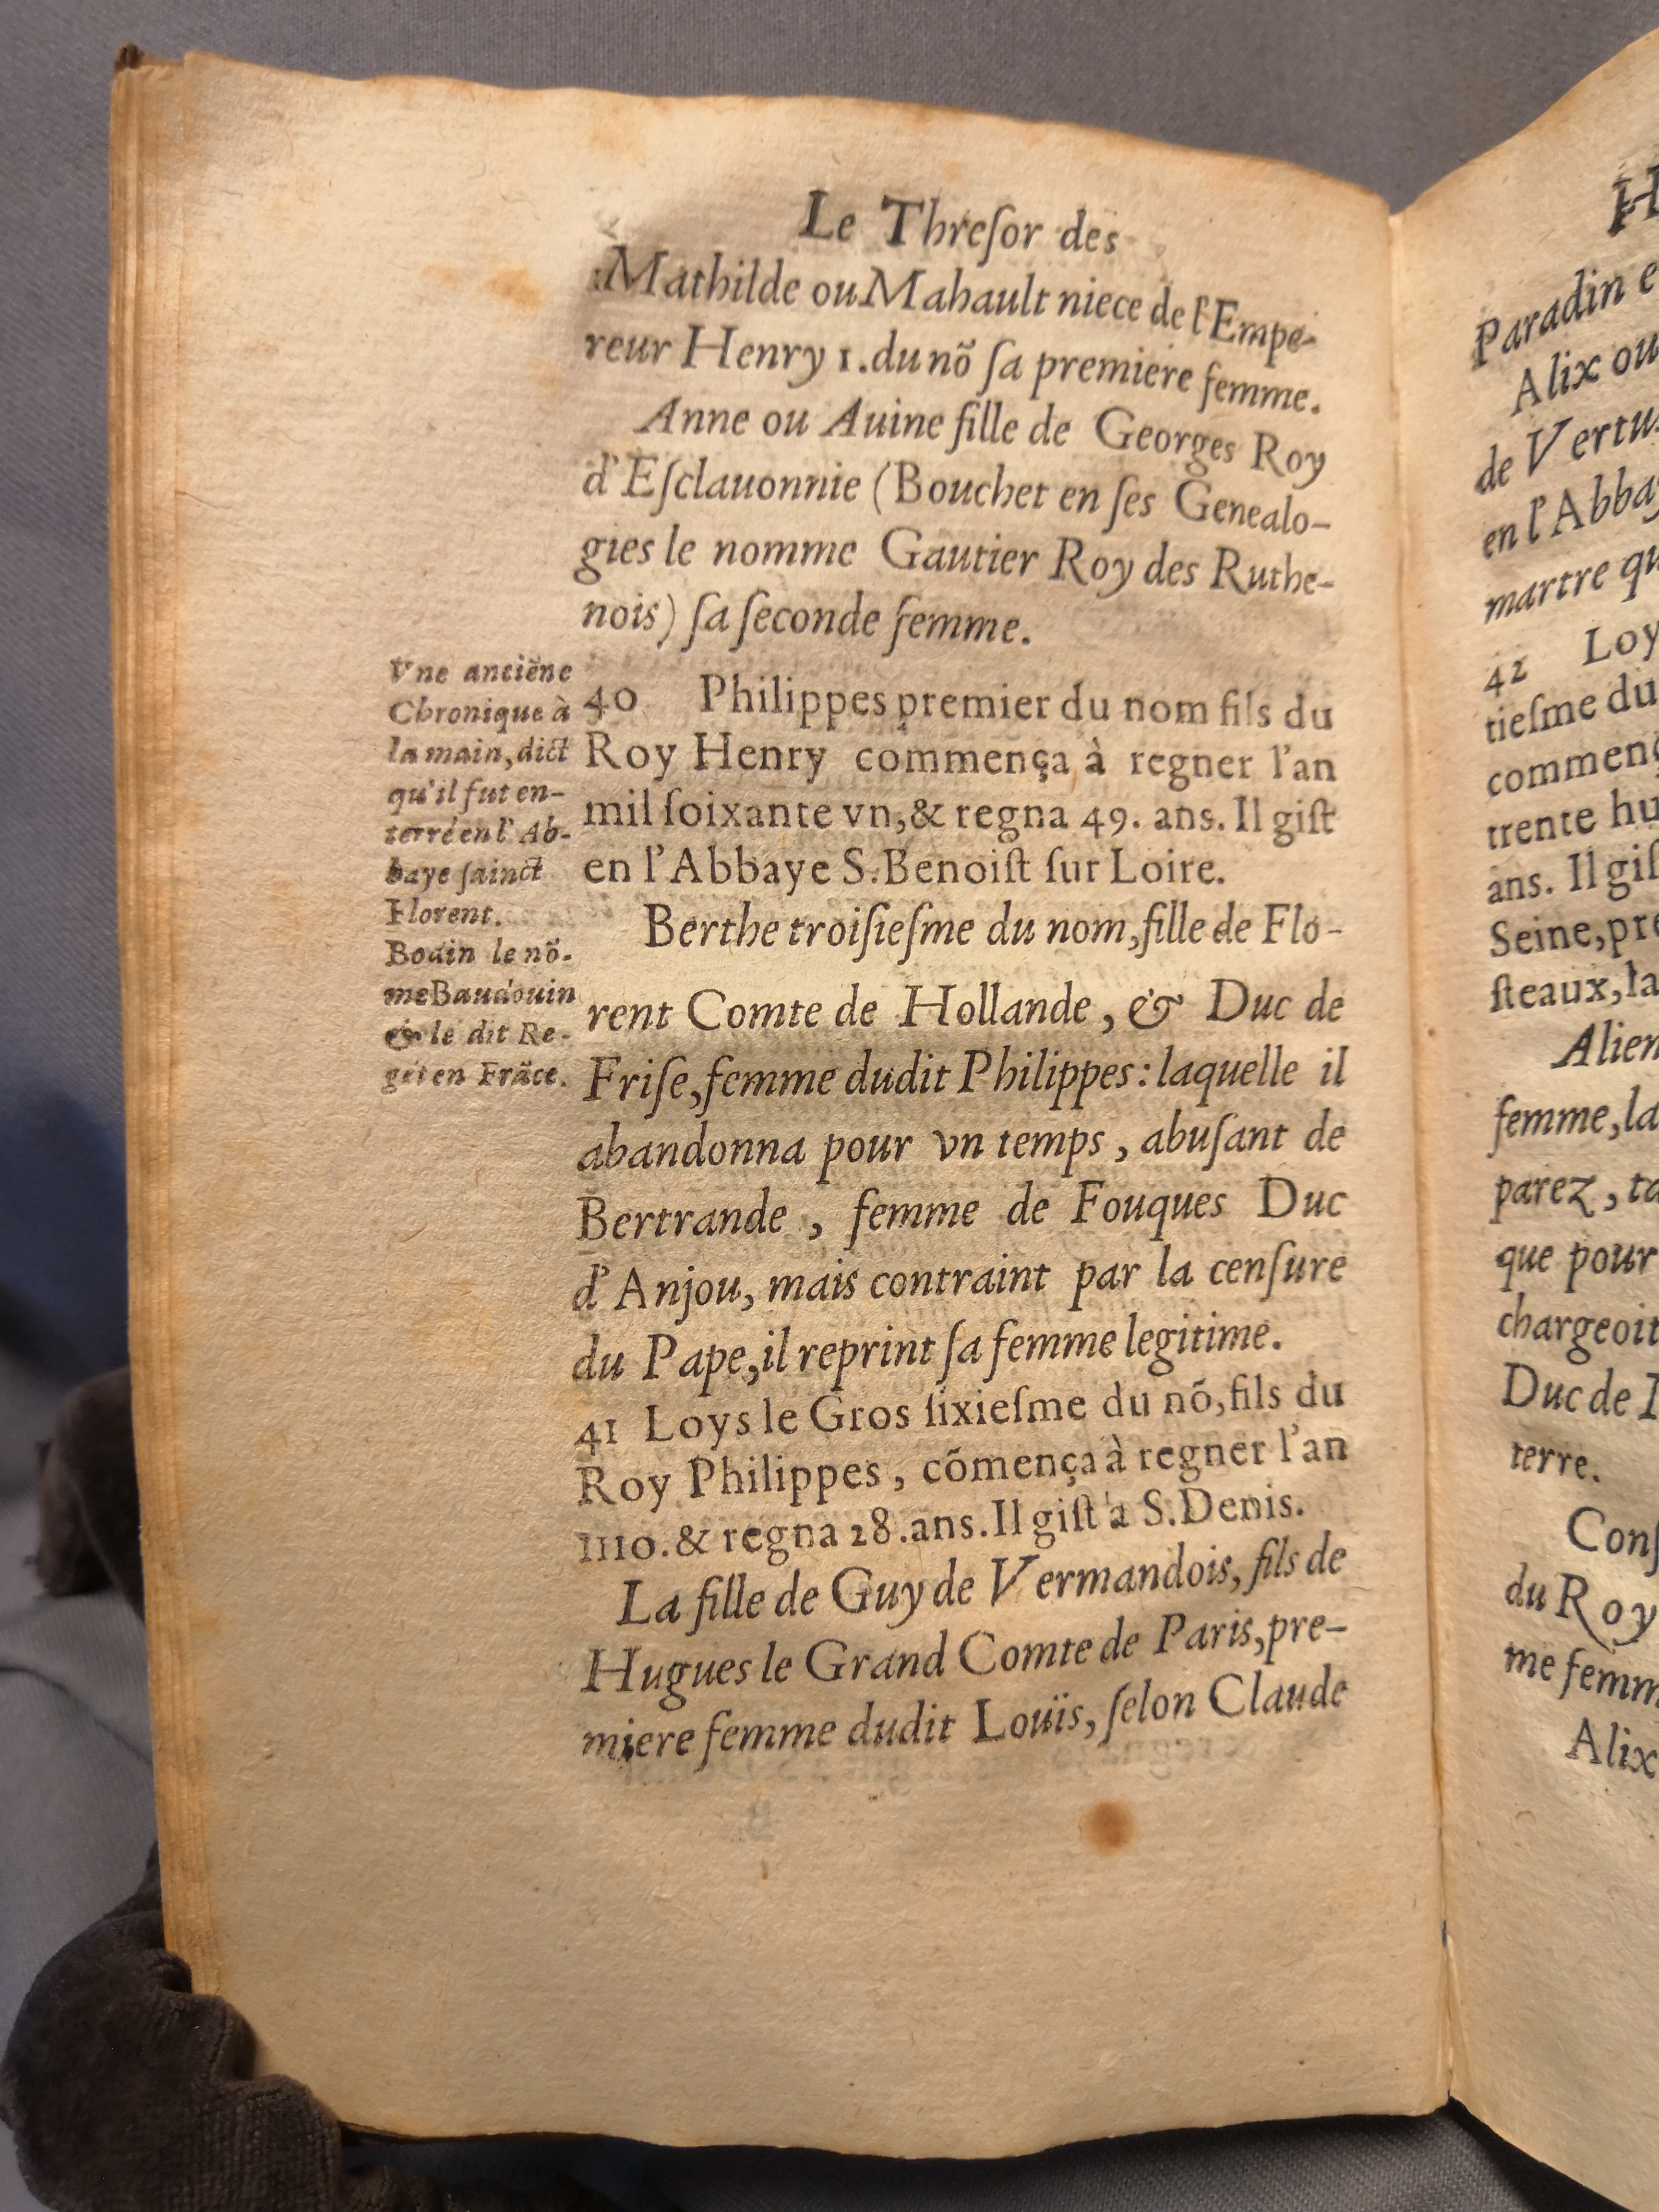 Le Threſor des
Mathilde ou Mahault niece de l'Empe-
reur Henry 1. du nõ ſa premiere femme.
Anne ou Auine fille de Georges Roy
d'Eſclauonnie (Bouchet en ſes Genealo-
gies le nomme Gautier Roy des Ruthe-
nois) ſa ſeconde femme.
40 Philippes premier du nom fils du
Roy Henry commença à regner l'an
mil ſoixante vn, & regna 49. ans. Il giſt
en l'Abbaye S. Benoiſt ſur Loire.
Berthe troiſieſme du nom, fille de Flo-
rent Comte de Hollande, & Duc de
Friſe, femme dudit Philippes: laquelle il
abandonna pour vn temps, abuſant de
Bertrande, femme de Fouques Duc
d'Anjou, mais contraint par la cenſure
du Pape, il reprint ſa femme legitime.
41 Loys le Gros ſixieſme du nõ, fils du
Roy Philippes, cõmença à regner l'an
1110. & regna 28. ans. Il giſt a S. Denis.
La fille de Guy de Vermandois, fils de
Hugues le Grand Comte de Paris, pre-
miere femme dudit Louïs, ſelon Claude
Vne anciẽne
Chronique à
la main, dict
qu'il fut en-
terré en l'Ab-
baye ſainct
Florent.
Bodin le nõ-
me Baudouin
& le dit Re-
gẽt en Frãce.
H
Paradin e
Alix ou
de Vertu
en l'Abbay
martre qu
42 Loy
tieſme du
commenç
trente hu
ans. Il giſ
Seine, pre
ſteaux, la
Alien
femme, la
parez, ta
que pour
chargeoit
Duc de
terre.
Conſ
du Roy
me femm
Alix